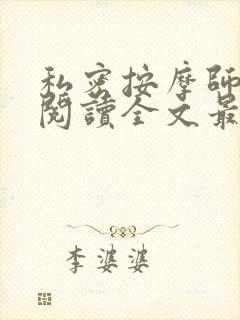 私密按摩師
閱讀全文最
李婆婆